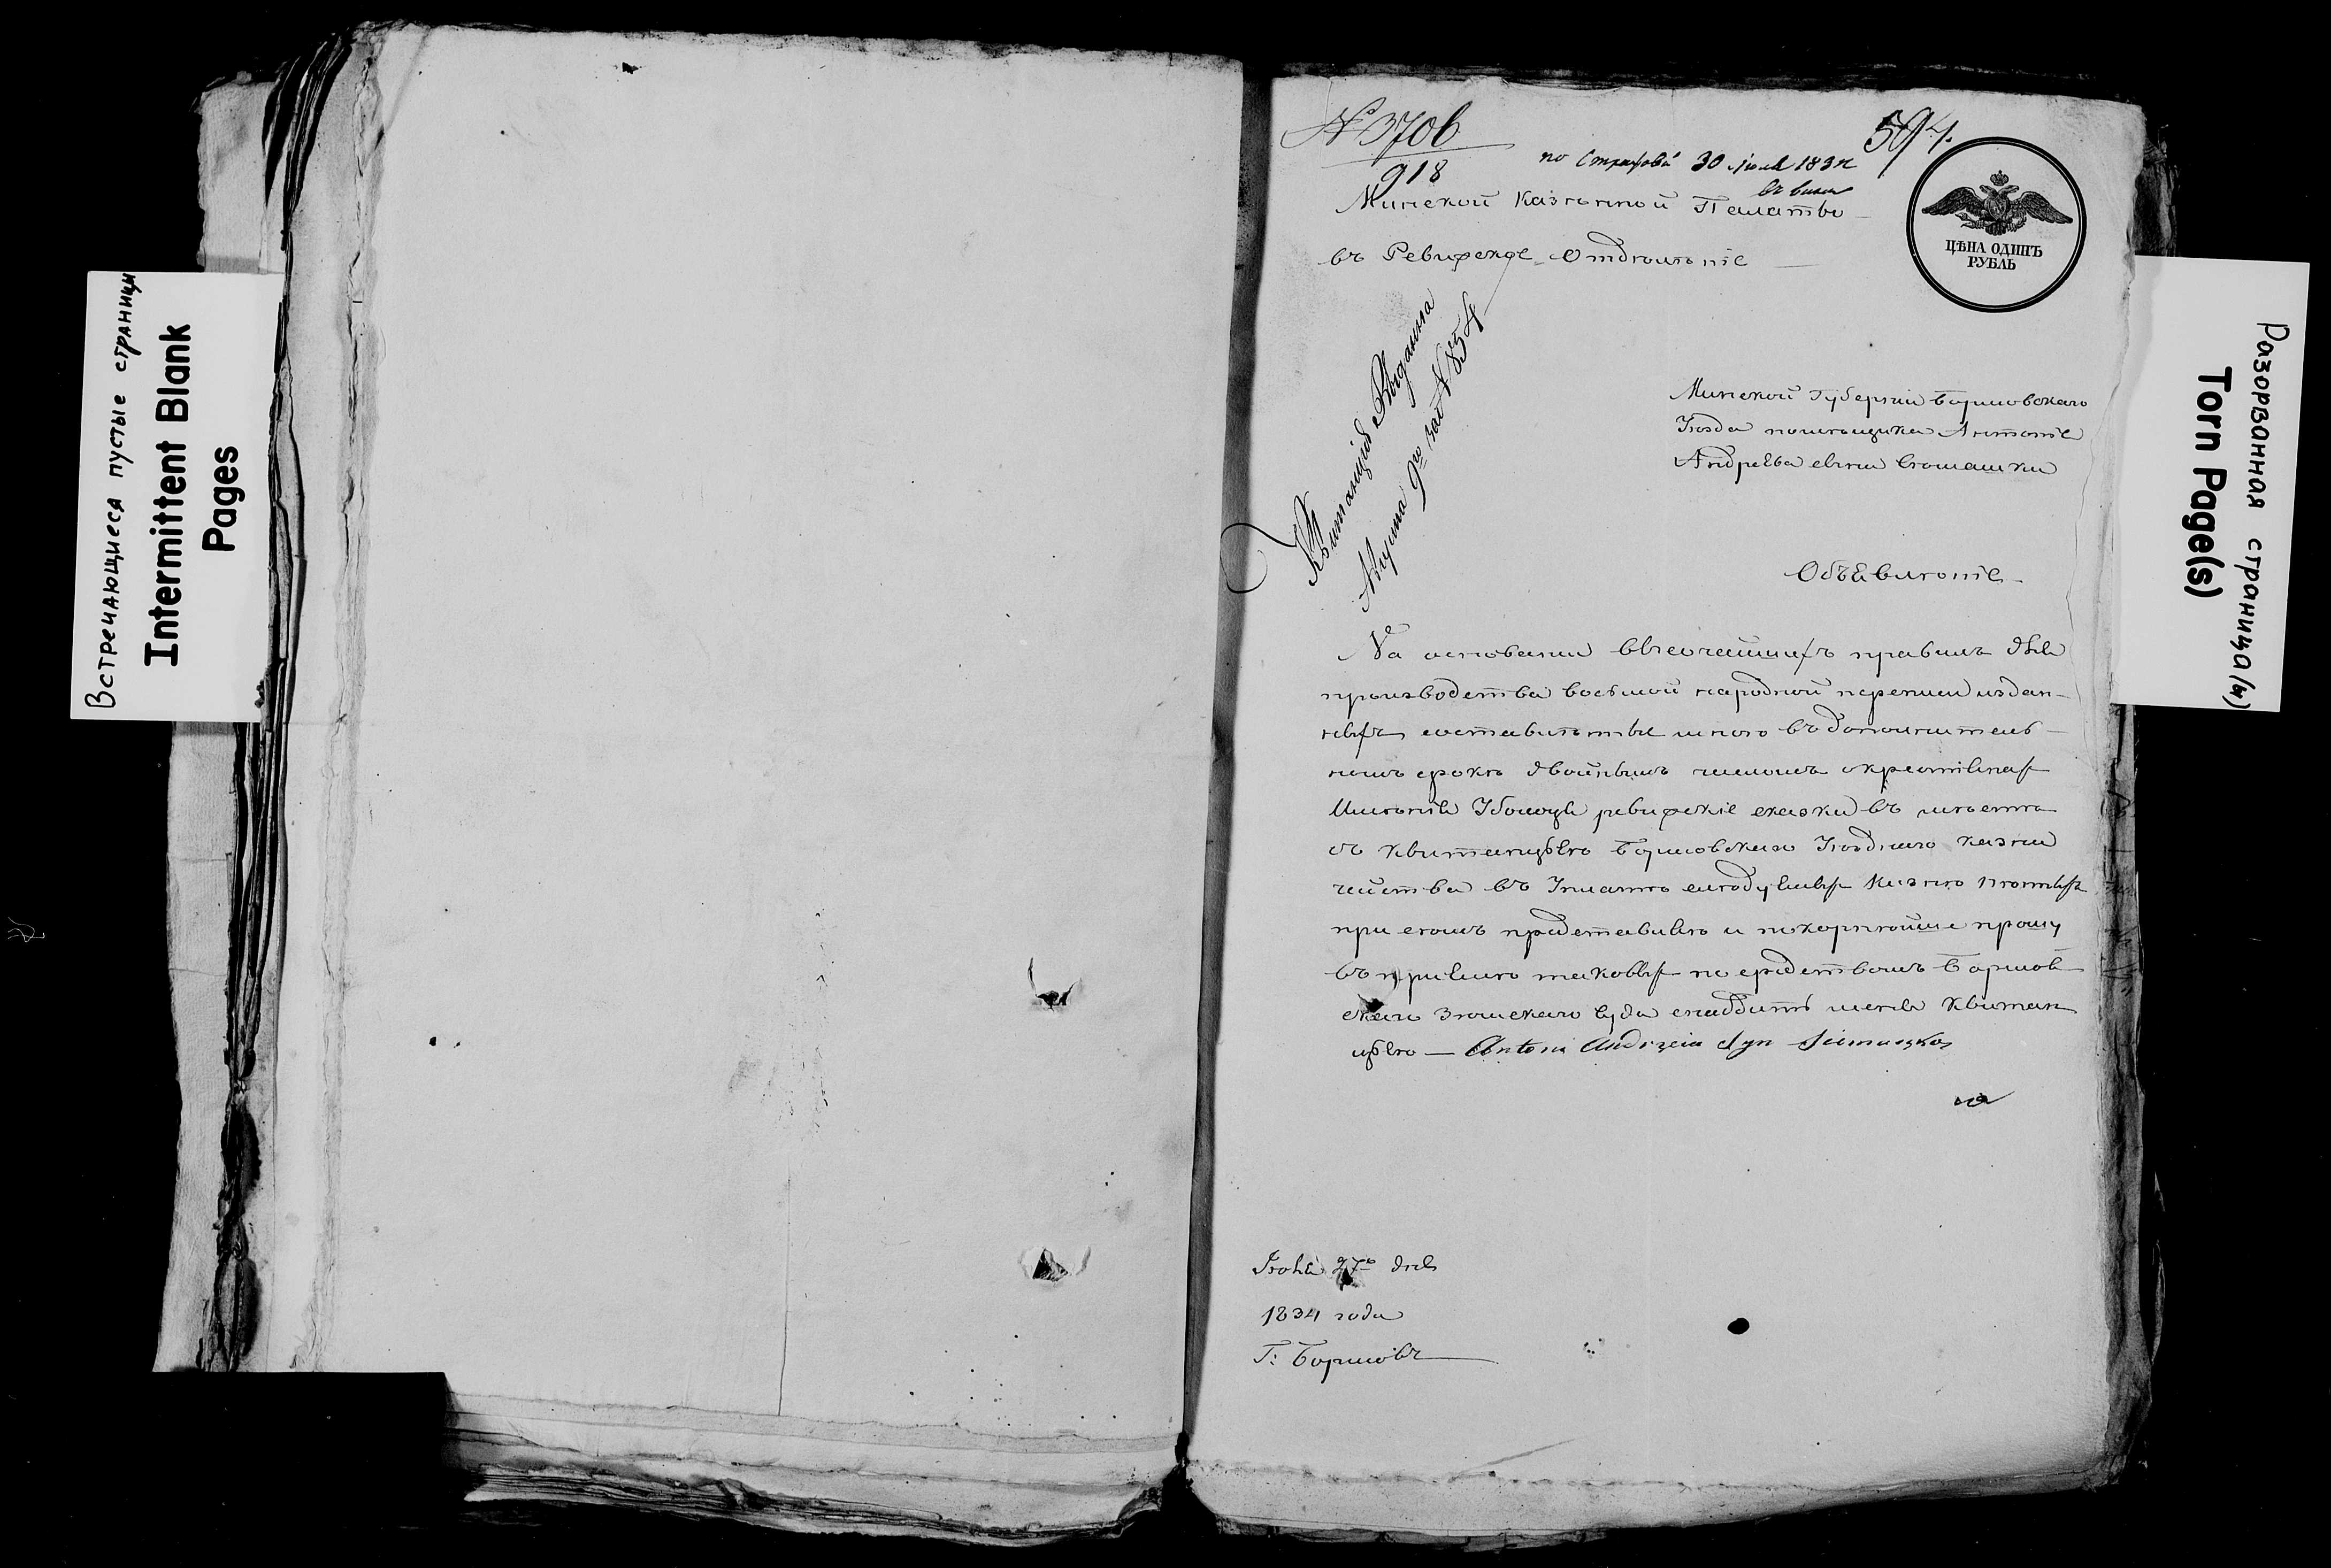 Встречающиеся пустые страницы
Intermittent Blank
Pages
№ 3706
918
594.
по Страховой 30 Июля 1834
Минской Казенной Палаты
въ Ревизское Отделенiе
ЦѢНА ОДИНЪ
РУБЛЬ
Квитанцiя Выданна
Августа 9го за № 8354
Минской Губернiи Борисовскаго
Уезда помещика Антонiя
Андреева сына Семашки
Объявленiе
На основанiи высочайшихъ правилъ для
производства восьмой народной переписи издан-
ныхъ составленные мною въ дополнитель-
номъ сроке двойнымъ числомъ о крестьянах
Именiя ревизскiе сказки въ месте
съ квитанцыею Борисовскаго Уезднаго казна
чейства въ Уплате следуемых
при семъ представляю и покорнейше прошу
въ приеме таковых посредствомъ Борисов
скаго Земскаго Суда снабдить меня квитан
цыею — Antoni Andrzeia Syn Siemaszko
Июля 27го дня
1834 года
Г: Борисовъ
Разорванная страница(ы)
Torn Page(s)